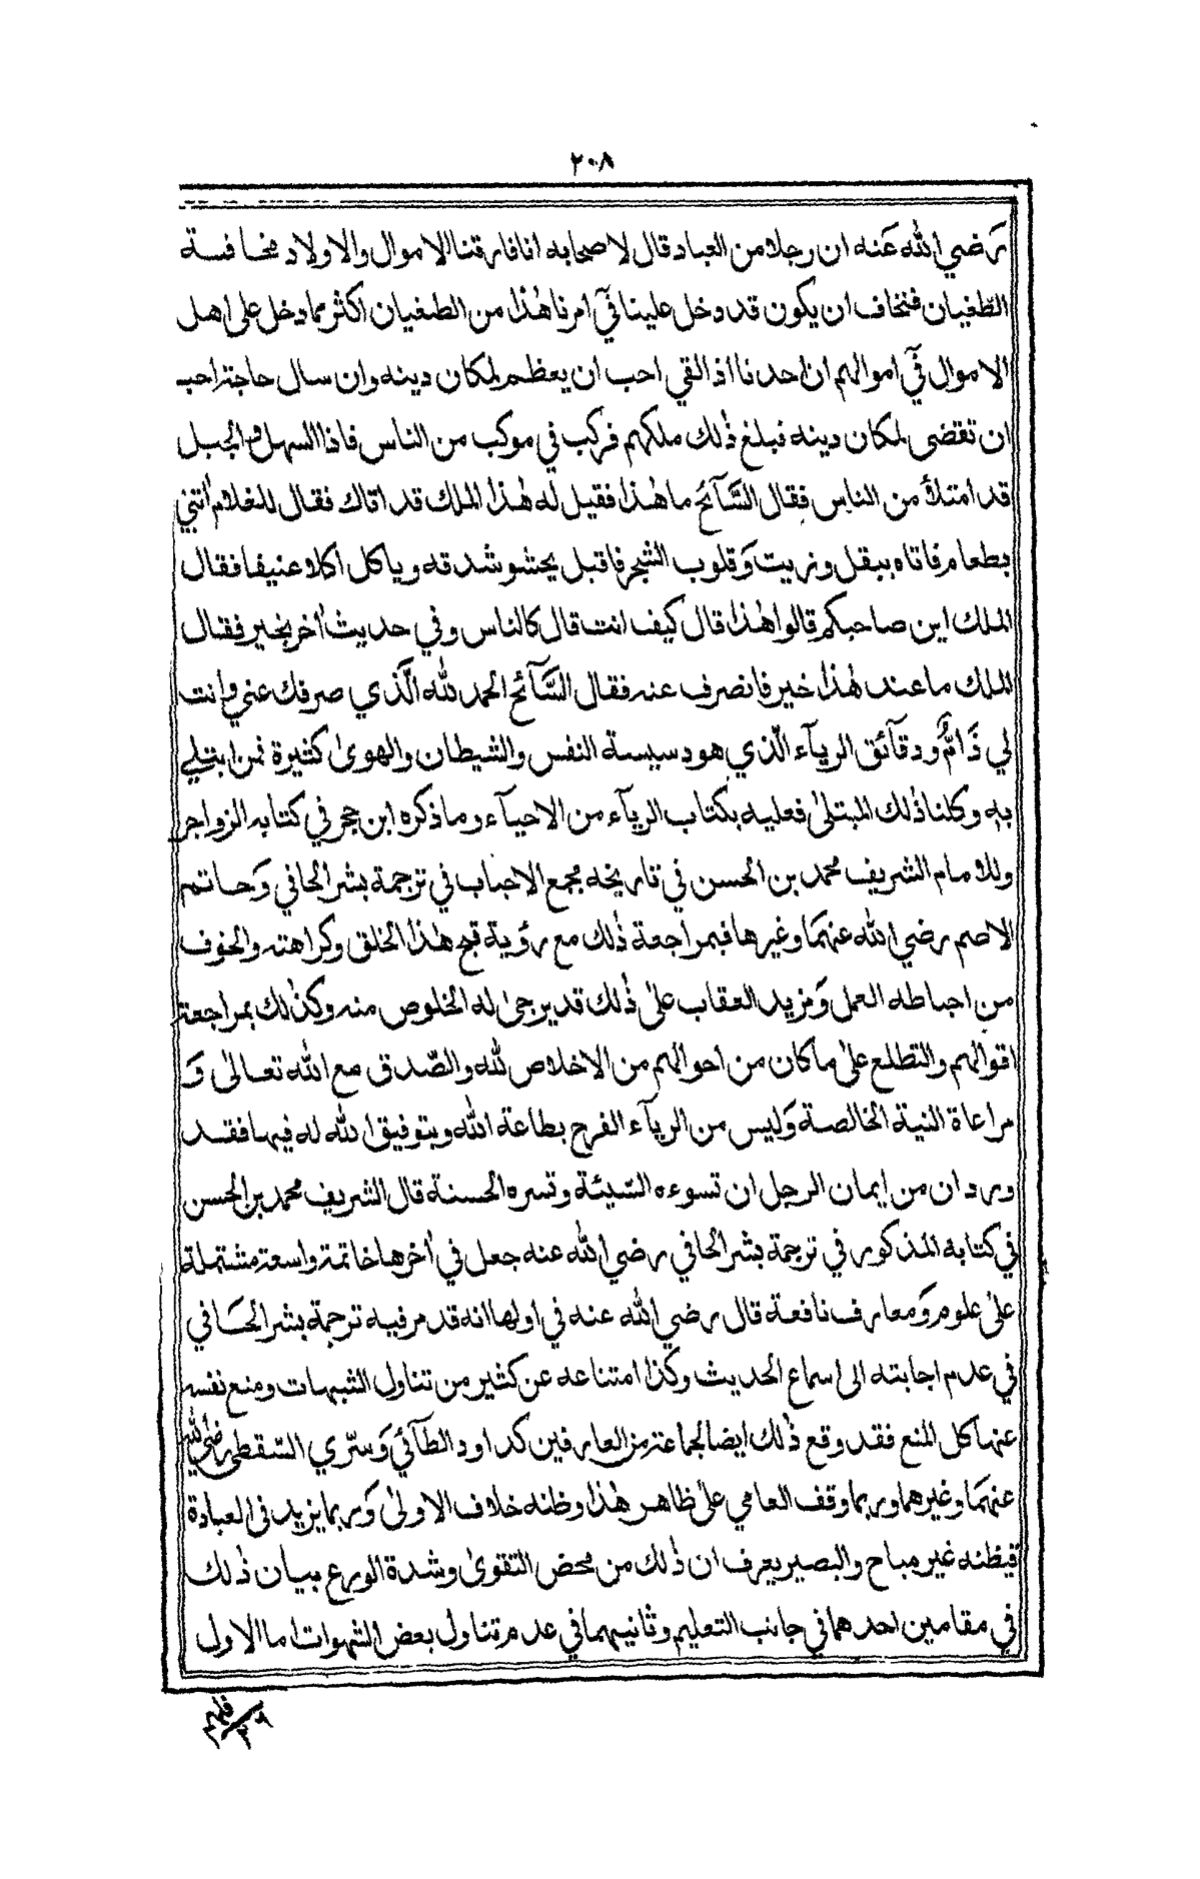 ٢٠٨
رضي الله عنه ان رجلا من العباد قال لاصحابه انا فارقنا الاموال والاولاد مخافة
الطّغيان فنخاف ان يكون قد دخل علينا فيٓ امرنا هٰذا من الطغيان اكثر مما دخل على اهل
الاموال فيٓ اموالهم ان احدنا اذا لقي احب ان يعظم لمكان دينه وان سال حاجة احب
ان تقضى لمكان دينه فبلغ ذٰلك ملكهم فركب في موكب من الناس فاذا السهل والجبل
قد امتلأ من الناس فقال السَّآئح ما هٰذا فقيل له هٰذا الملك قد اتاك فقال للغلام ائتني
بطعام فاتاه ببقل وزيت وَقلوب الشجر فاقبل يحشو شدقه وياكل اكلا عنيفا فقال
الملك اين صاحبكم قالوا هٰذا قال كيف انت قال كالناس وفي حديث اٰخر بخير فقال
الملك ما عند هٰذا خير فانصرف عنه فقال السَّآئح الحمد لله الَّذي صرفك عني وانت
لي ذَامٌّ ودقآئق الريآء الّذي هو دسيسة النفس والشيطان والهوىٰ كثيرة فمن ابتلي
به وكلنا ذٰلك المبتلىٰ فعليه بكتاب الريآء من الاحيآء وما ذكره ابن حجر في كتابه الزواجر
وللامام الشريف محمد بن الحسن في تاريخه مجمع الاحباب في ترجمة بشر الحافي وَحاتم
الاصم رضي الله عنهمَا وغيرها فبمراجعة ذٰلك مع رؤية قبح هٰذا الخلق وكراهته والخوف
من احباطه العمل وَمزيد العقاب علىٰ ذٰلك قد يرجىٰ له الخلوص منه وكذٰلك بمراجعة
اقوالهم والتطلع علىٰ ما كان من احوالهم من الاخلاص لله والصّدق مع الله تعالىٰ وَ
مراعاة النية الخالصة وَليس من الريآء الفرح بطاعة الله وبتوفيق الله له فيها فقد
ورد ان من إيمان الرجل ان تسوءه السّيئة وتسره الحسنة قال الشريف محمد بن الحسن
في كتابه المذكور في ترجمة بشر الحافي رضي الله عنه جعل في اٰخرها خاتمة واسعة مشتملة
علىٰ علوم وَمعارف نافعة قال رضي الله عنه في اولها انه قد مر فيه ترجمة بشر الحَافي
في عدم اجابته الى اسماع الحديث وكذا امتناعه عن كثير من تناول الشبهات ومنع نفسه
عنها كل المنع فقد وقع ذٰلك ايضا لجماعة من العارفين كداود الطآئي وَسرّي السّقطي رضي الله
عنهمَا وغيرهما وربما وقف العامي علىٰ ظاهر هٰذا وظنه خلاف الاولىٰ وَربما يزيد في العبادة
فيظنه غير مباح والبصير يعرف ان ذٰلك من محض التقوىٰ وشدة الورع ببيان ذٰلك
في مقامين احدهما في جانب التعليم وثانيهما في عدم تناول بعض الشهوات اما الاول